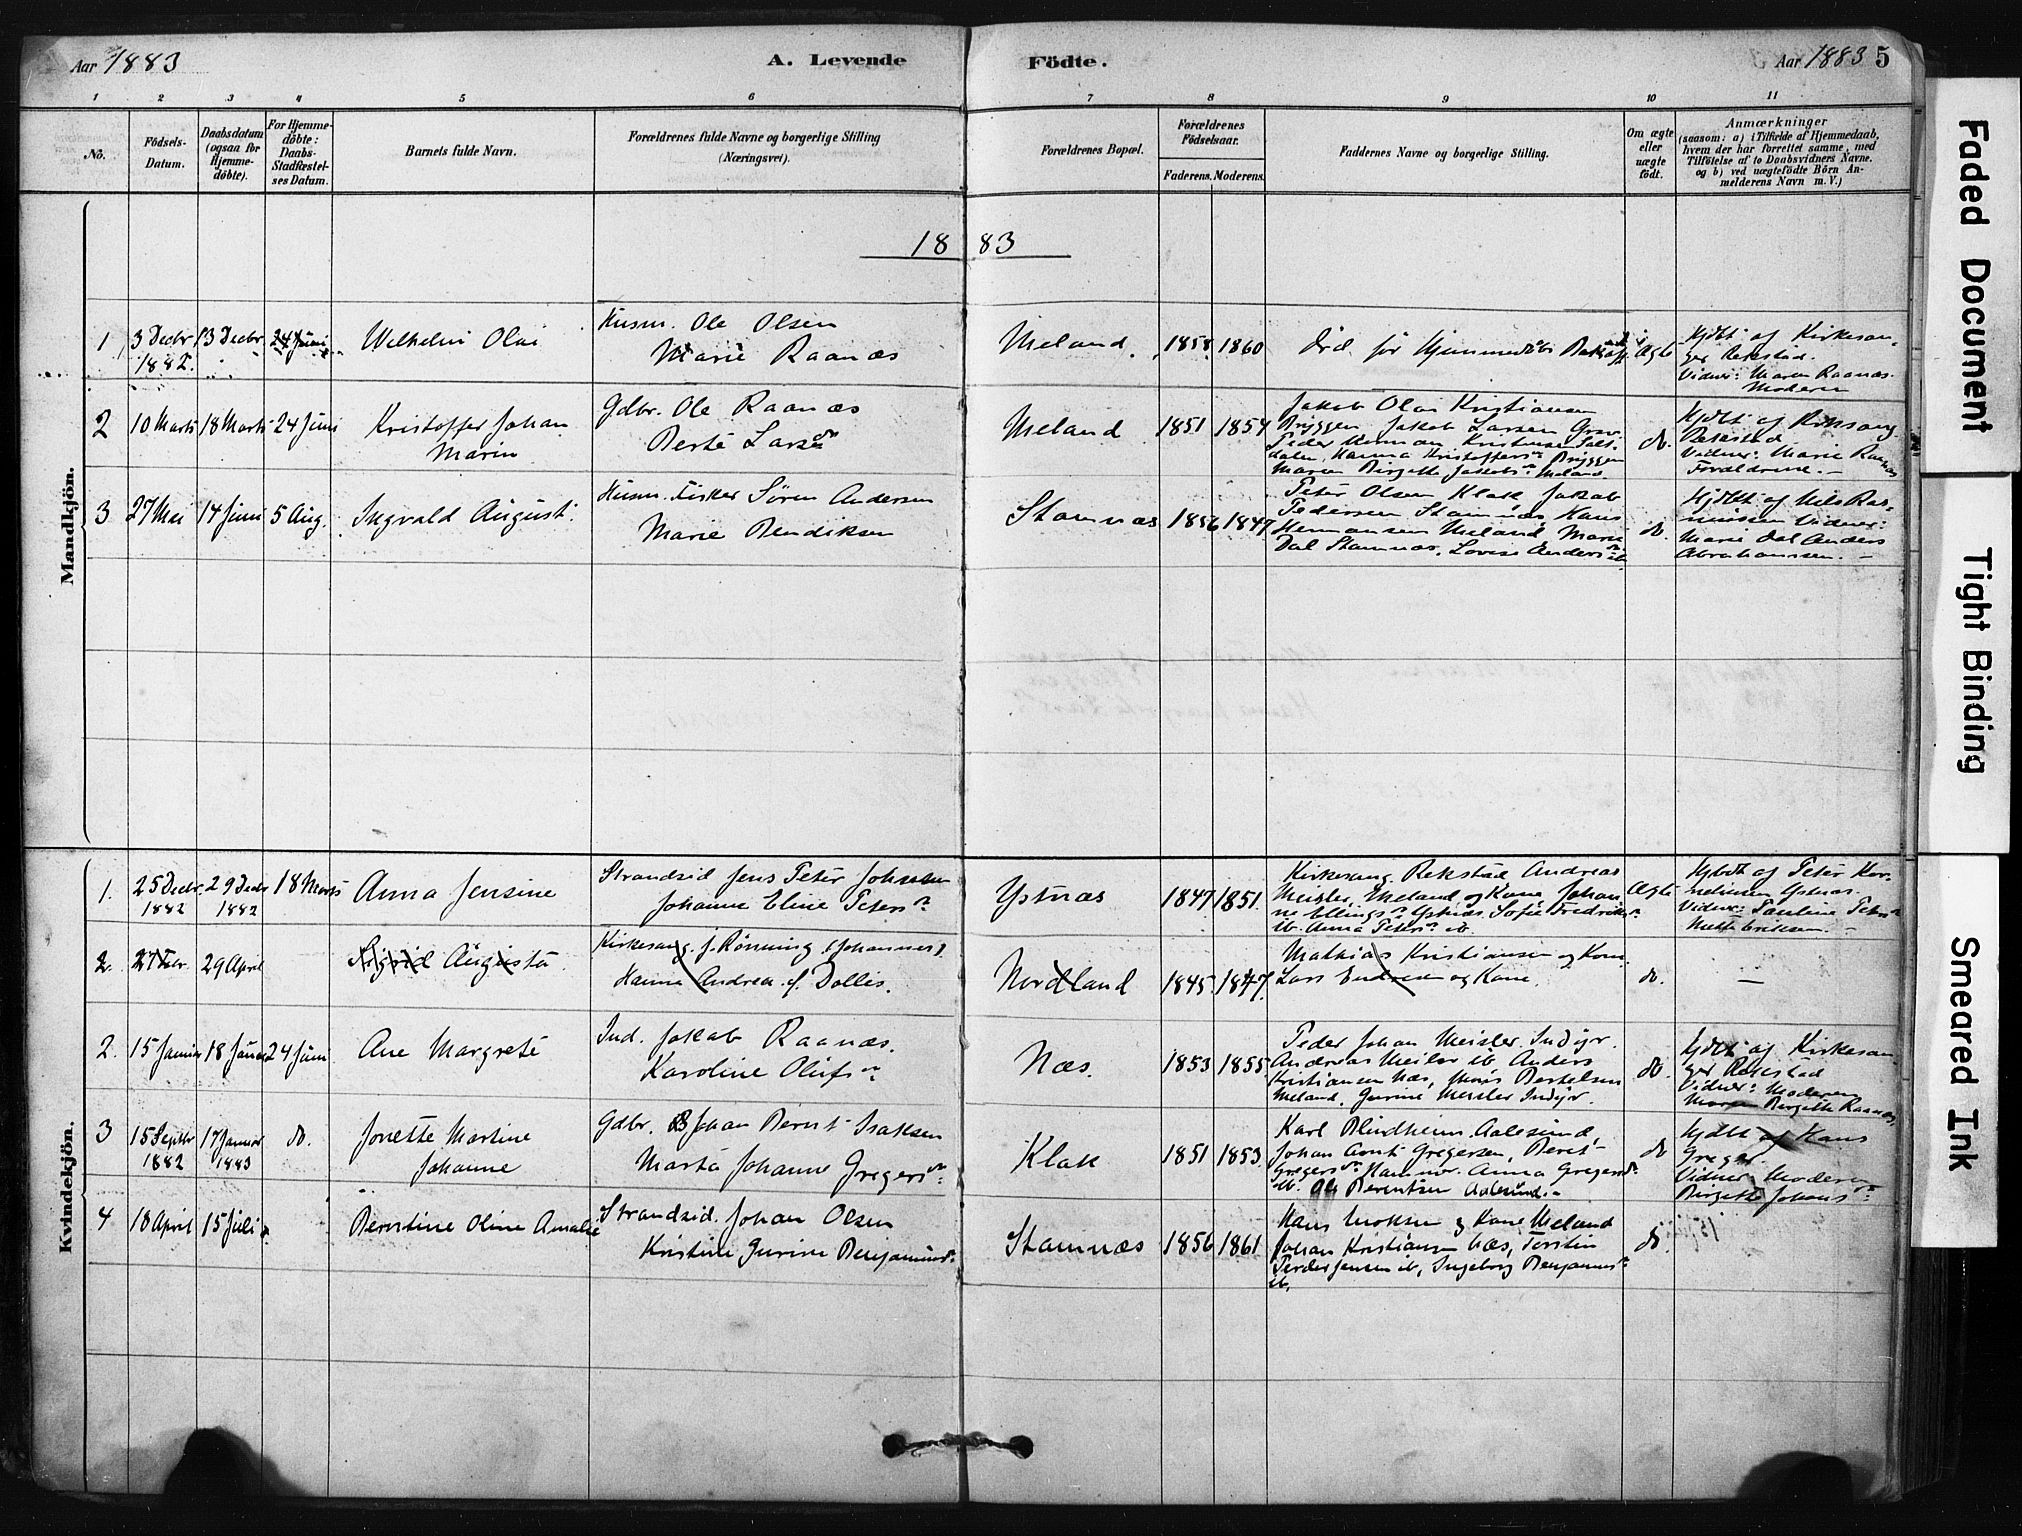 Aar 1883
A. Levende
Födte.
Aar 1883 5
1 2 3 4 5 6 7 8 9 10 11
No.
Födsels-
Datum.
Daabsdatum
(ogsaa for
Hjemme-
döbte).
For Hjemme-
döbte:
Daabs-
Stadfæstel-
ses Datum.
Barnets fulde Navn.
Forældrenes fulde Navne og borgerlige Stilling
(Næringsvei).
Forældrenes Bopæl.
Forældrenes
Födselsaar.
Faderens. Moderens.
Faddernes Navne og borgerlige Stilling.
Om ægte
eller
uægte
födt.
Anmærkninger
(saasom: a) i Tilfælde af Hjemmedaab,
hvem der har forrettet samme, med
Tilföielse af to Daabsvidners Navne.
og b) ved uægtefödte Börn An-
melderens Navn m. V.)
1883
Mandkjön.
1 3 Decbr 13 Decbr 24 Juni
1882.
Wilhelm Olai
Husm. Ole Olsen
Marie Raanæs
Meland 1858 1860
Död før Hjemmedöbs
Ægte
Hjdbt af Kirkesan-
ger Rekstad.
Vidner: Maren Raanæs
Moderen
2 10 Marts 18 Marts 24 Juni
Kristoffer Johan
Marin
Gdbr. Ole Raanæs
Berte Larsdr
Meland 1851 1854
Jakob Olai Kristiansen
Bryggen Jakob Larsen
Peder Herman Kristensen
dalen, Hanna Kristoffersdr Bryggen
Maren Birgitte Jakobsdr Meland
do.
Hjdbt af Kirksang.
Rekstad
Vidner: Marie Raanæs
Forældrene. -
3 27 Mai 14 Juni 5 Aug.
Ingvald August.
Husm. Fisker Sören Andersen
Marie Bendiksen
Stamnæs 1856 1847
Peter Olsen Klak, Jakob
Pedersen Stamnæs, Hans
Hermansen Meland, Marie
Dal Stamnæs, Lovise Andersdr ib.
do.
Hjdbt af Nils Ras-
mussen Vidner:
Marie Dal Anders
Abrahamsen. -
Kvindekjön.
1. 25 Decbr 29 Decbr 18 Marts
1882 1882
Anna Jensine
Strandsid Jens Peter Johnsen
Johanne Eline Petersdr
Ystnæs 1847 1851
Kirkesang. Rekstad Andreas
Meisler, Meland og Kone, Johan-
ne Ellingsdr Ystnæs, Sofie Fredriksdr
ib. Anna Petersdr ib.
Ægte
Hjbdt af Peter Kor-
neliusen Ystnæs.
Vidner: Pauline Petersdr
Mette Eriksen. -
2. 27 Febr. 29 April
Sigrid Augusta.
Kirkesang. J. Rönning (Johannes)
Hanna Andrea f. Dollis.
Nordland 1845 1847.
Mathias Kristiansen og Kone
Lars Endresen og Kone.
do. -
2. 15 Januar 18 Januar 24 Juni
Ane Margrete
Ind. Jakob Raanæs.
Karoline Olufsdr
Næs. 1853 1855
Peder Johan Meisler. Indyr.
Andreas Meisler ib Anders
Kristiansen Næs, Bertelsen
Meland. Gurine Meisler Indyr.
do.
Hjdbt af Kirkesan-
ger Rekstad
Vidner: Moderen
Maren Birgitte Raanæs
3 15 Septbr 17 Januar do.
1882 1883
Jonette Martine
Johanne
Gdbr. Johan Bernt Isaksen
Marta Johanne Gregersdr
Klak 1851 1853
Karl Blindheim. Aalesund,
Johan Arnt Gregersen, Berit
Gregersdr Anna Gregersdr
ib. Ole Berentsen Aalesund. -
do
Hjdbt af Hans
Greger.
Vidner: Moderen
Birgitte Johansdr
4 18 April 15 Juli
Berntine Oline Amalie
Strandsid. Johan Olsen
Kristine Gurine Benjaminsdr
Stamnæs 1856 1861
Hans og Kone Meland
Johan Kristiansen Næs, Torstin
Peder Jensen ib, Ingeborg Benjaminsdr
ib.
do.
Faded Document
Tight Binding
Smeared Ink